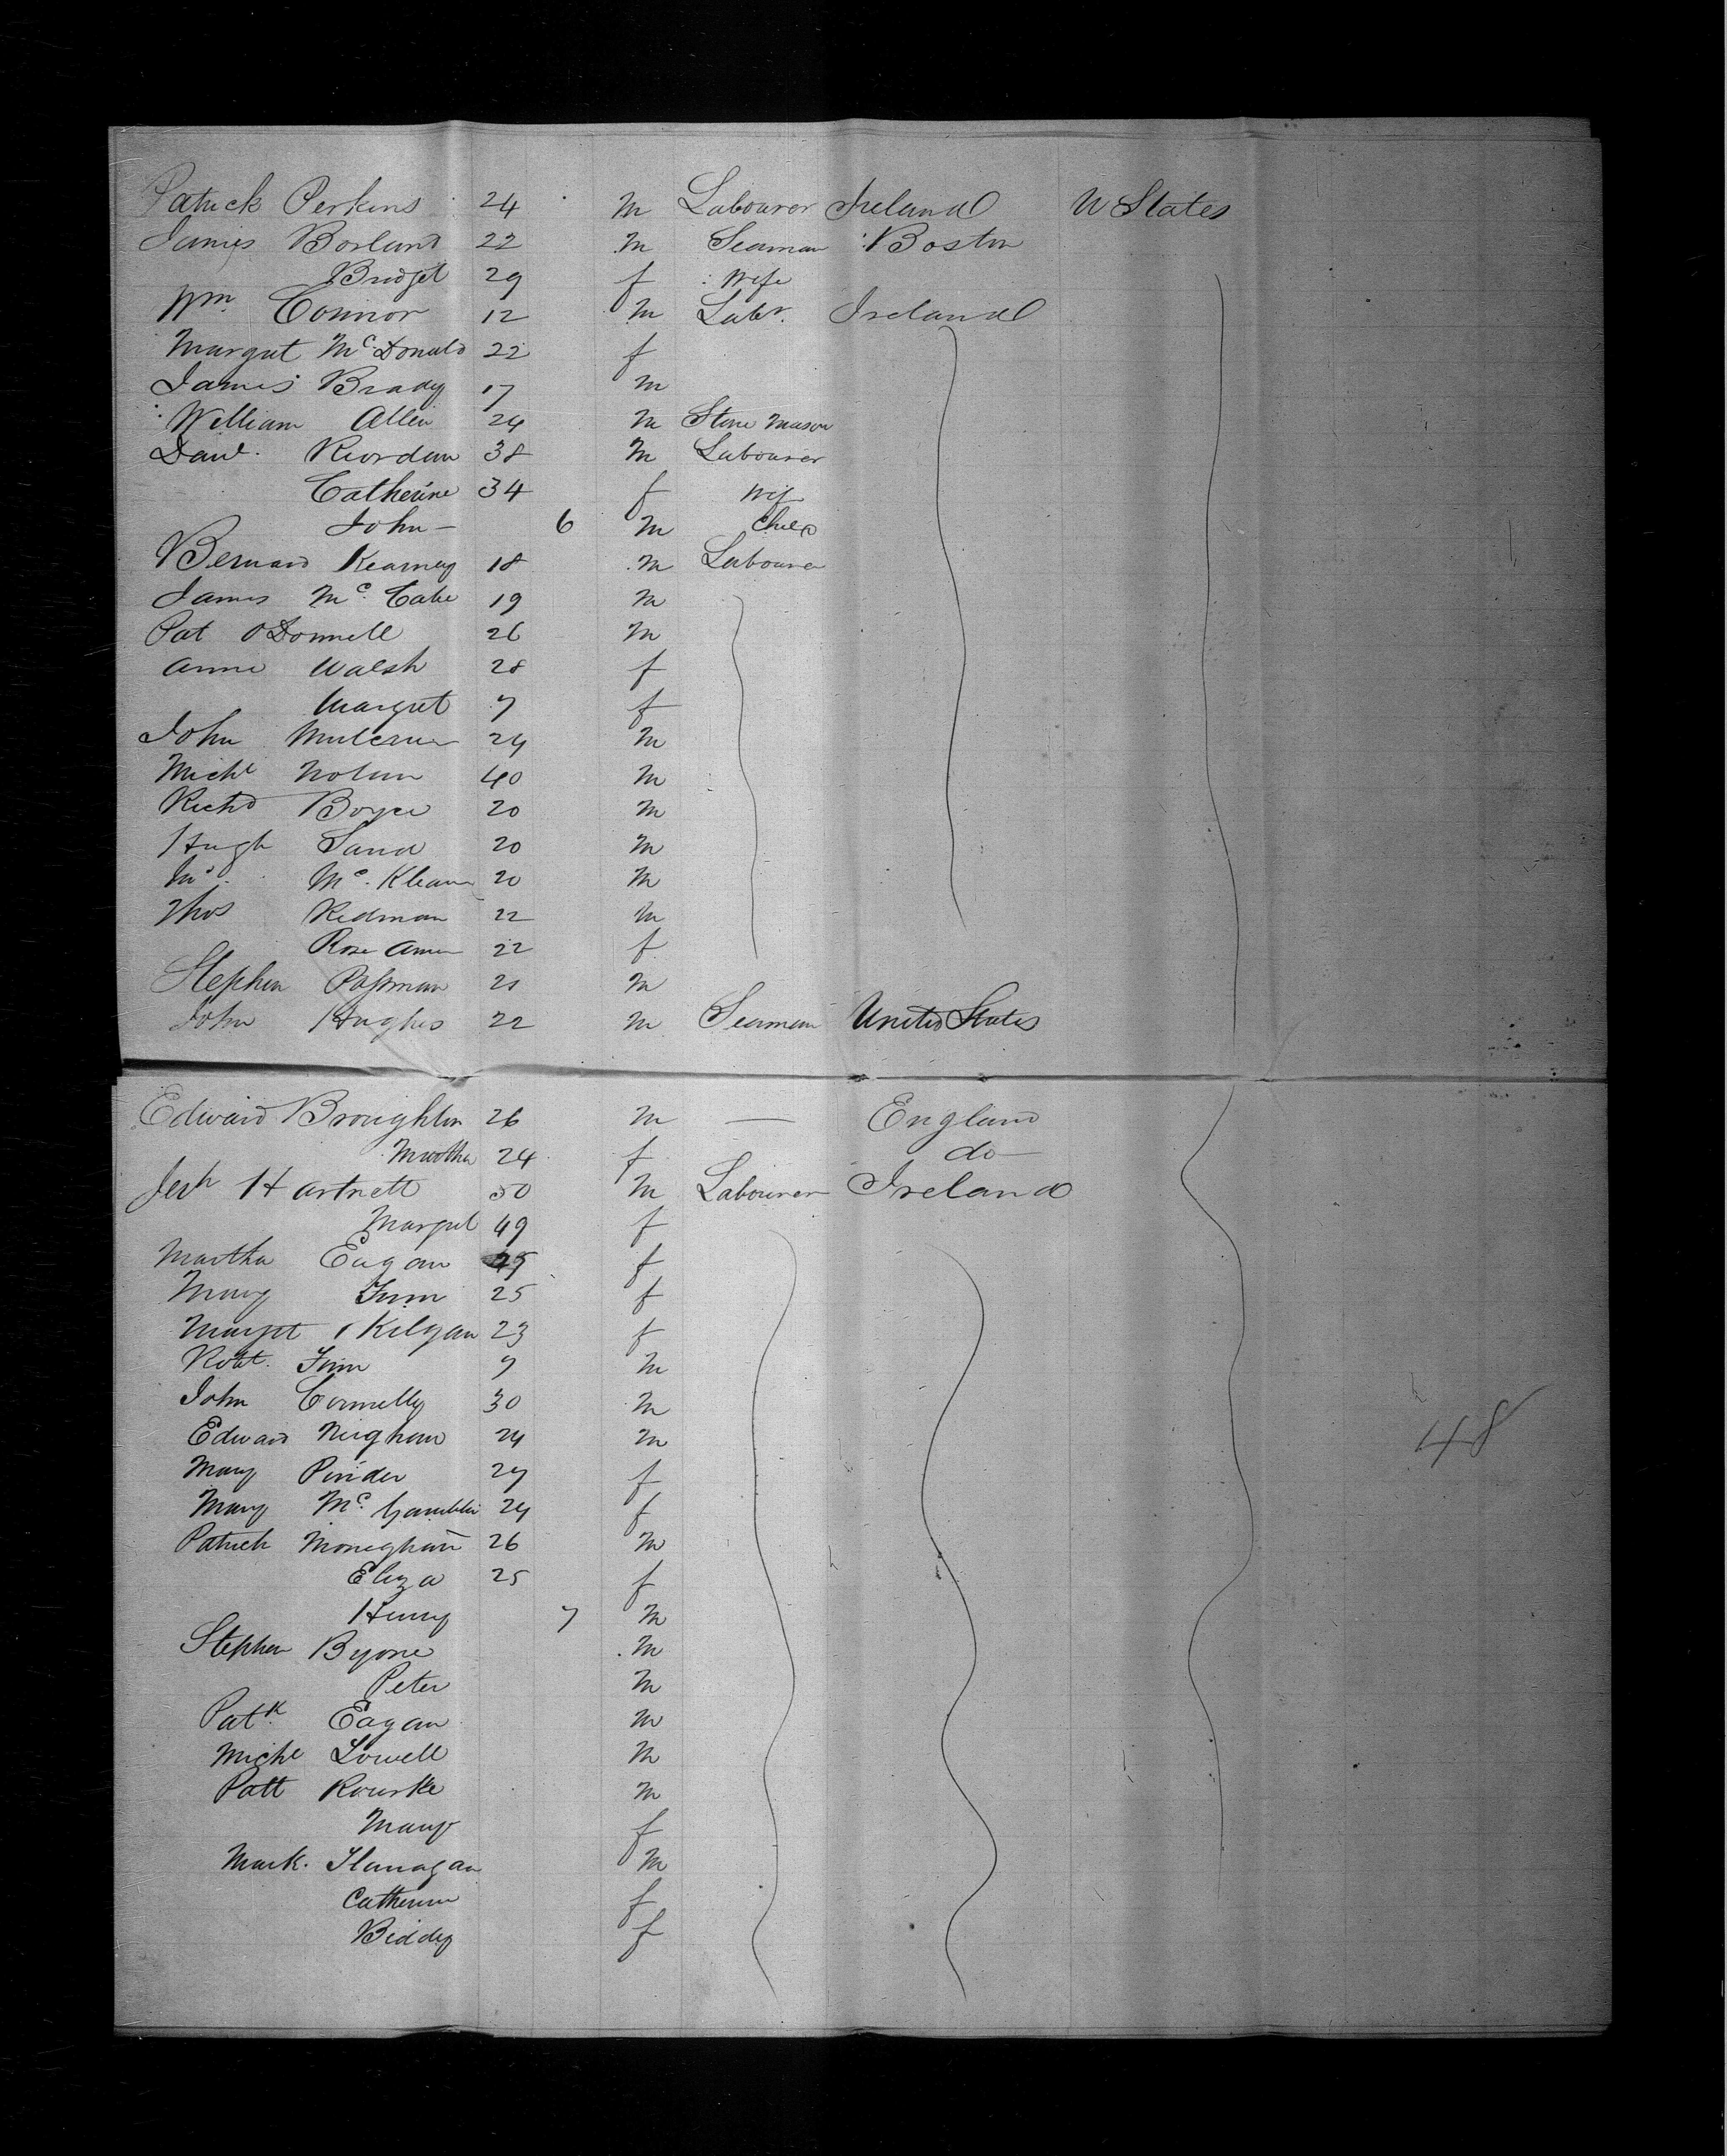 Patrick Perkins 24 M Labourer Ireland U States
James Borland 22 M Seaman Boston
Bridget 29 f Wife
Wm Connor 12 M Labr. Ireland
Margret McDonald 22 f
James Brady 17 M
William Allen 24 M Stone Mason
Danl. Riordan 38 M Labourer
Catherine 34 f Wif
John - 6 M Child
Bernard Kearney 18 M Labourer
James McCabe 19 M
Pat O'Donnell 26 M
Anne Walsh 28 f
Margret 7 f
John 24 M
Michl Nolan 40 M
Richd Boyce 20 M
Hugh Sand 20 M
Mc. 20 M
Thos Redman 22 M
Rose Ann 22 f
Stephen Passman 21 M
John Hughes 22 M Seaman United States
Edward Broughton 26 M — England
Martha 24 f do
Jerh Hartnett 50 M Labourer Ireland
Margret 49 f
Martha Eagan f
Mary Finn 25 f
Margt Kilgan 23 f
Robt. Finn 9 M
John Connelly 30 M
Edward 24 M
Mary Pinder 27 f
Mary Mc 24 f
Patrick Moneghan 26 M
Eliza 25 f
Henry 7 M
Stephen Byone M
Peter M
Patk Eagan M
Michl Lowell M
Patt Rourke M
Mary f
Mark. Flanagan M
Catherine f
Biddy f
48